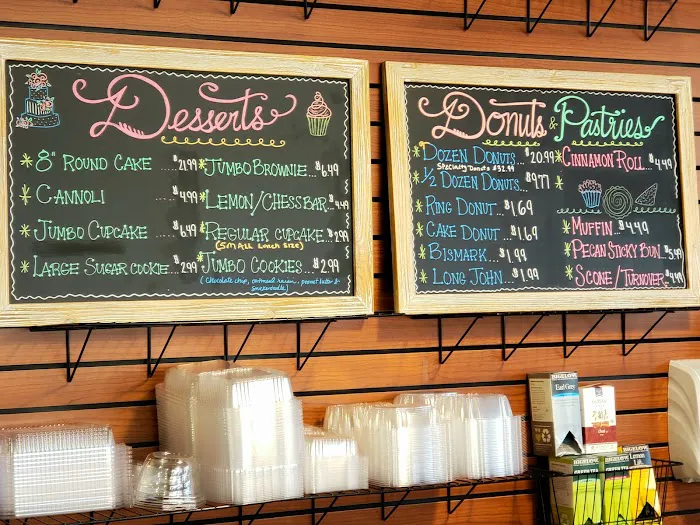 Desserts
8" Round Cake ....$21.99
Cannoli ....$4.99
Jumbo Cupcake ....$6.49
Large Sugar Cookie...$2.99
Jumbo Brownie...$6.49
Lemon/Chess Bar...$4.49
Regular Cupcake...$2.99
(Small Lunch Size)
Jumbo Cookies...$2.99
(Chocolate chip, oatmeal raisin, peanut butter &
Snickerdoodle)
Donuts & Pastries
Dozen Donuts...$20.99
Specialty Donuts $31.99
1/2 Dozen Donuts...$9.77
Ring Donut...$1.69
Cake Donut...$1.69
Bismark...$1.99
Long John...$1.99
Cinnamon Roll...$4.49
Muffin...$4.49
Pecan Sticky Bun...$5.49
Scone/Turnover...$4.49
BIGELOW
Earl Grey
Chai
BIGELOW
GREEN TEA
BIGELOW
GREEN TEA
BIGELOW
Lemon